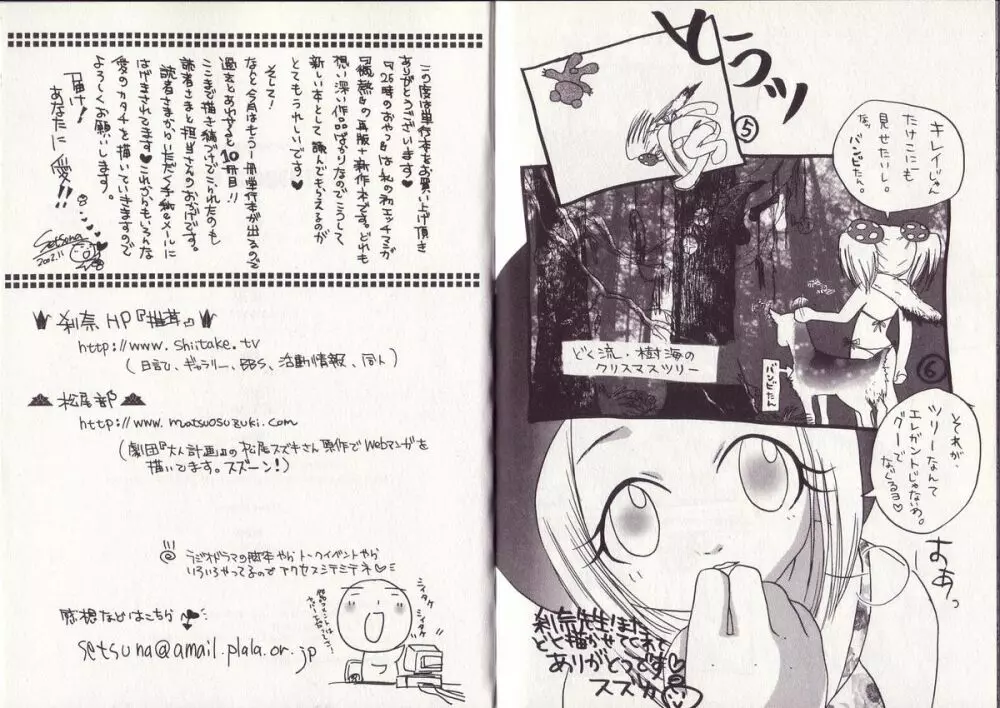 とうッ
⑤
キレイじゃ
たけこにも
見せたいし。
な、バンビたん。
どく流・樹海の
クリスマスツリー
バンビたん
⑥
それが、
ツリーなんて
エレガントじゃないわ。
グーで
なぐるヨ♡
おあっ
刹奈先生!また
どど描かせてくれて
ありがとうです♡
スズカ
この度は単行本をお買い上げ頂き
ありがとうございます!
『26時のおやつ』はわれの初エッチマンガ
『微熱』の再版+新作本です。どれも
想い深い作品ばかりなのでこうして
新しい本として読んでもらえるのが
とてもうれしいです♥
そして!
なんと今月はもう一冊単行本が出るので
過去とあわせると10冊目!!
ここまで描き続けてこられたのも
読者さまと担当さんのおかげです。
読者さまからいただく手紙やメールに
はげまされてます♥これからもいろんな
愛のカタチを描いていきますので
よろしくお願いします。
届け!
あなたに愛!!
Setsuna
2002.11
刹奈HP『椎茸』
http://www.shiitake.tv
(日記、ギャラリー、BBS、活動情報、同人)
松尾部
http://www.matsuosuzuki.com
(劇団『大人計画』の松尾スズキさん原作でWebマンガを
描いてます。スズーン!)
ラジオドラマの脚本やらトークイベントやら
いろいろやってるのでアクセスシテミテネ♡
感想などはこちら
setsuna@amail.plala.or.jp
シイタケ
シイタケ